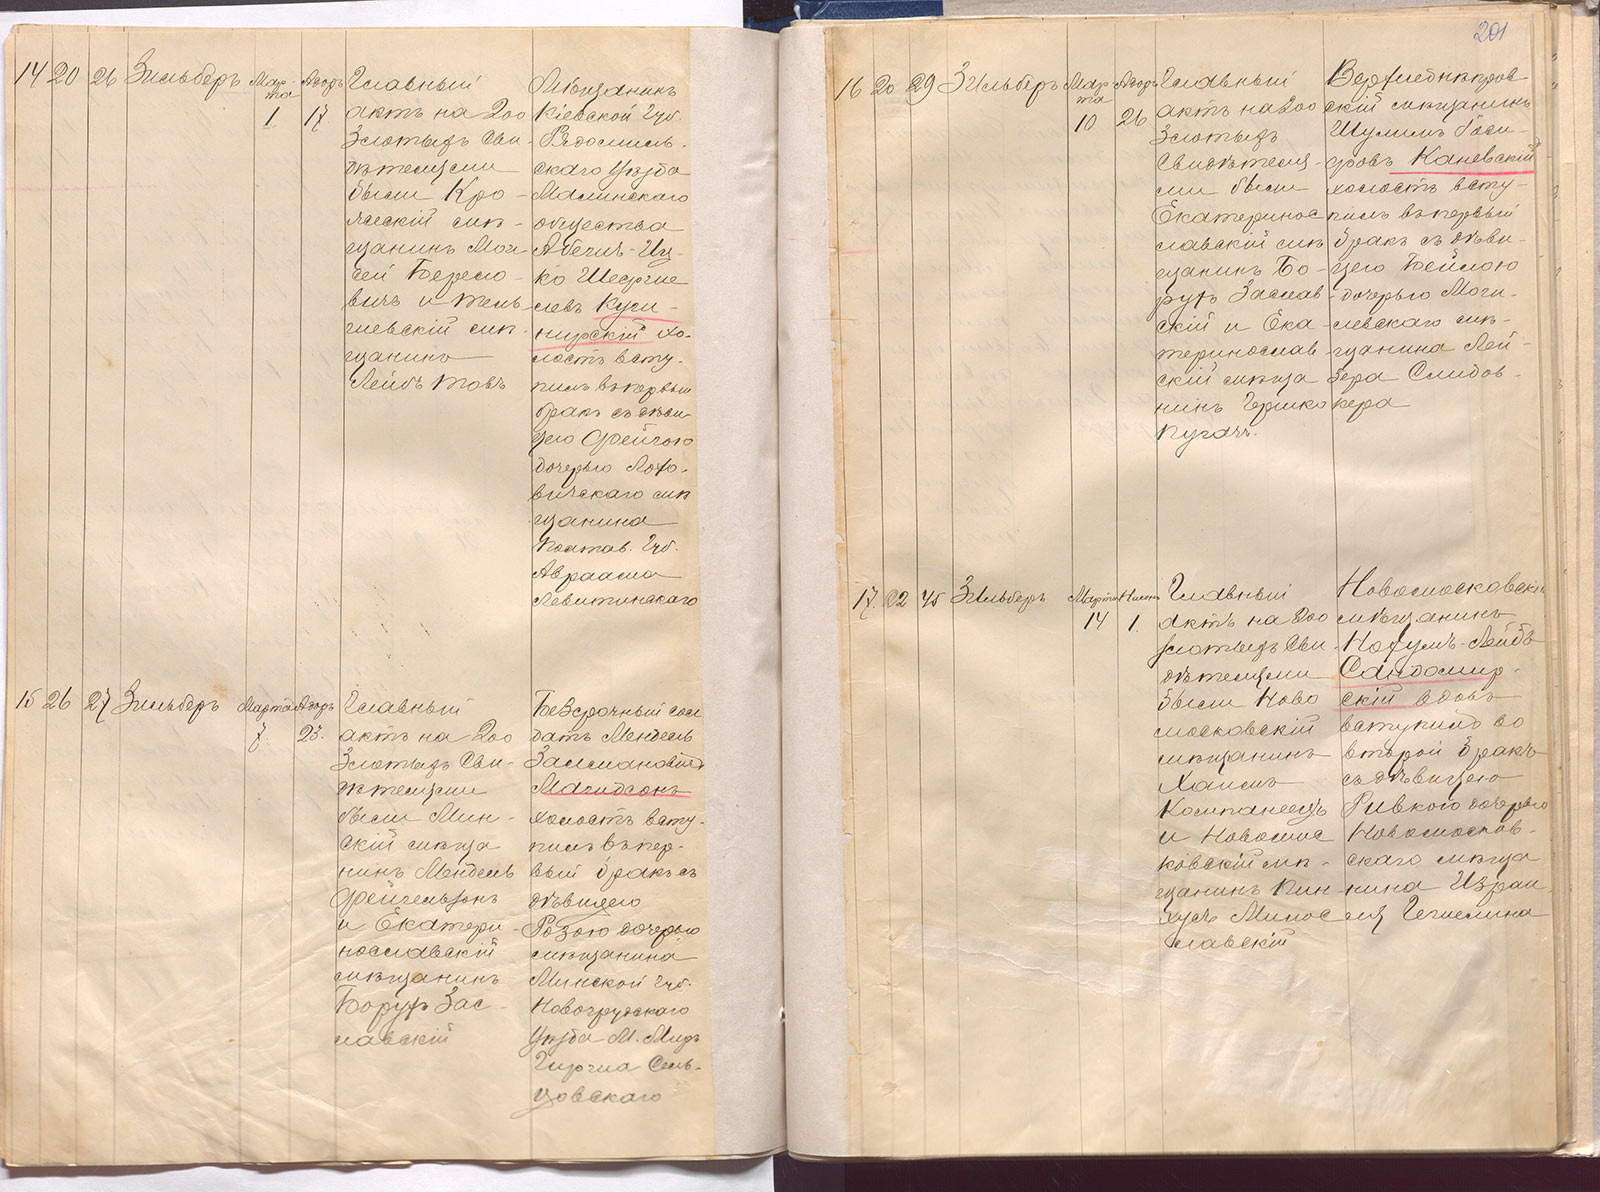 14 20 26 Зильберъ Мар-
та
1
Адоръ
17
Главный
актъ на 200
Злотыхъ Сви-
дѣтелями
были Кро-
левскій мѣ-
щанинъ Мои-
сей Берко-
вичъ и
скій мѣ-
щанинъ
Лейбъ
Мѣщанинъ
Кіевской Губ.
Радомысль-
скаго Уѣзда
Малинскаго
общества
Абелъ-Иц-
ко
левъ Куш-
нирскій хо-
лостъ всту-
пилъ въ первый
бракъ съ дѣви-
цею Фейгою
дочерью Лохо-
вицкаго мѣ-
щанина
Полтав. Губ.
Авраама
Левитинскаго
15 26 27 Зильберъ Марта
7.
Адоръ
23.
Главный
актъ на 200
Злотыхъ Сви-
дѣтелями
были Мин-
скій мѣща
нинъ Мендель
Фейгельсонъ
и Екатери-
нославскій
мѣщанинъ
Борухъ Зас-
лавскій
Безсрочный сол
датъ Мендель
Залмановичъ
Магидсонъ
холостъ всту-
пилъ въ пер-
вый бракъ съ
дѣвицею
Розою дочерью
мѣщанина
Минской Губ.
Новогрудскаго
Уѣзда М. Миръ
Гирша Сель-
цовскаго
201
16 20 29 Зильберъ Мар
та
10
Адоръ
26
Главный
актъ на 200
Злотыхъ
Свидѣтеля-
ми были
Екатеринос
лавскій мѣ
щанинъ Бо-
рухъ Заслав-
скій и Ека-
теринослав-
скій мѣща
нинъ Гершко
Пугачъ.
Верхнеднѣпров-
скій мѣщанинъ
Шулимъ Іоси-
фовъ Каневскій
холостъ всту-
пилъ въ первый
бракъ съ дѣви-
цею Бейлою
дочерью Моги-
левскаго мѣ-
щанина Лей-
зера Слидов-
кера
17. 22 45 Зильберъ Марта
14
Нисонъ
1.
Главный
актъ на 200
злотыхъ Сви-
дѣтелями
были Ново
московскій
мѣщанинъ
Хаимъ
Компанеецъ
и Новомос
ковскій мѣ-
щанинъ Пин-
хусъ Милос
лавскій
Новомосковскій
мѣщанинъ
Нохумъ-Лейбъ
Сандомир-
скій вдовъ
вступилъ во
второй бракъ
съ дѣвицею
Ривкою дочерью
Новомосков-
скаго мѣща
нина Израи
ля Гегмелина